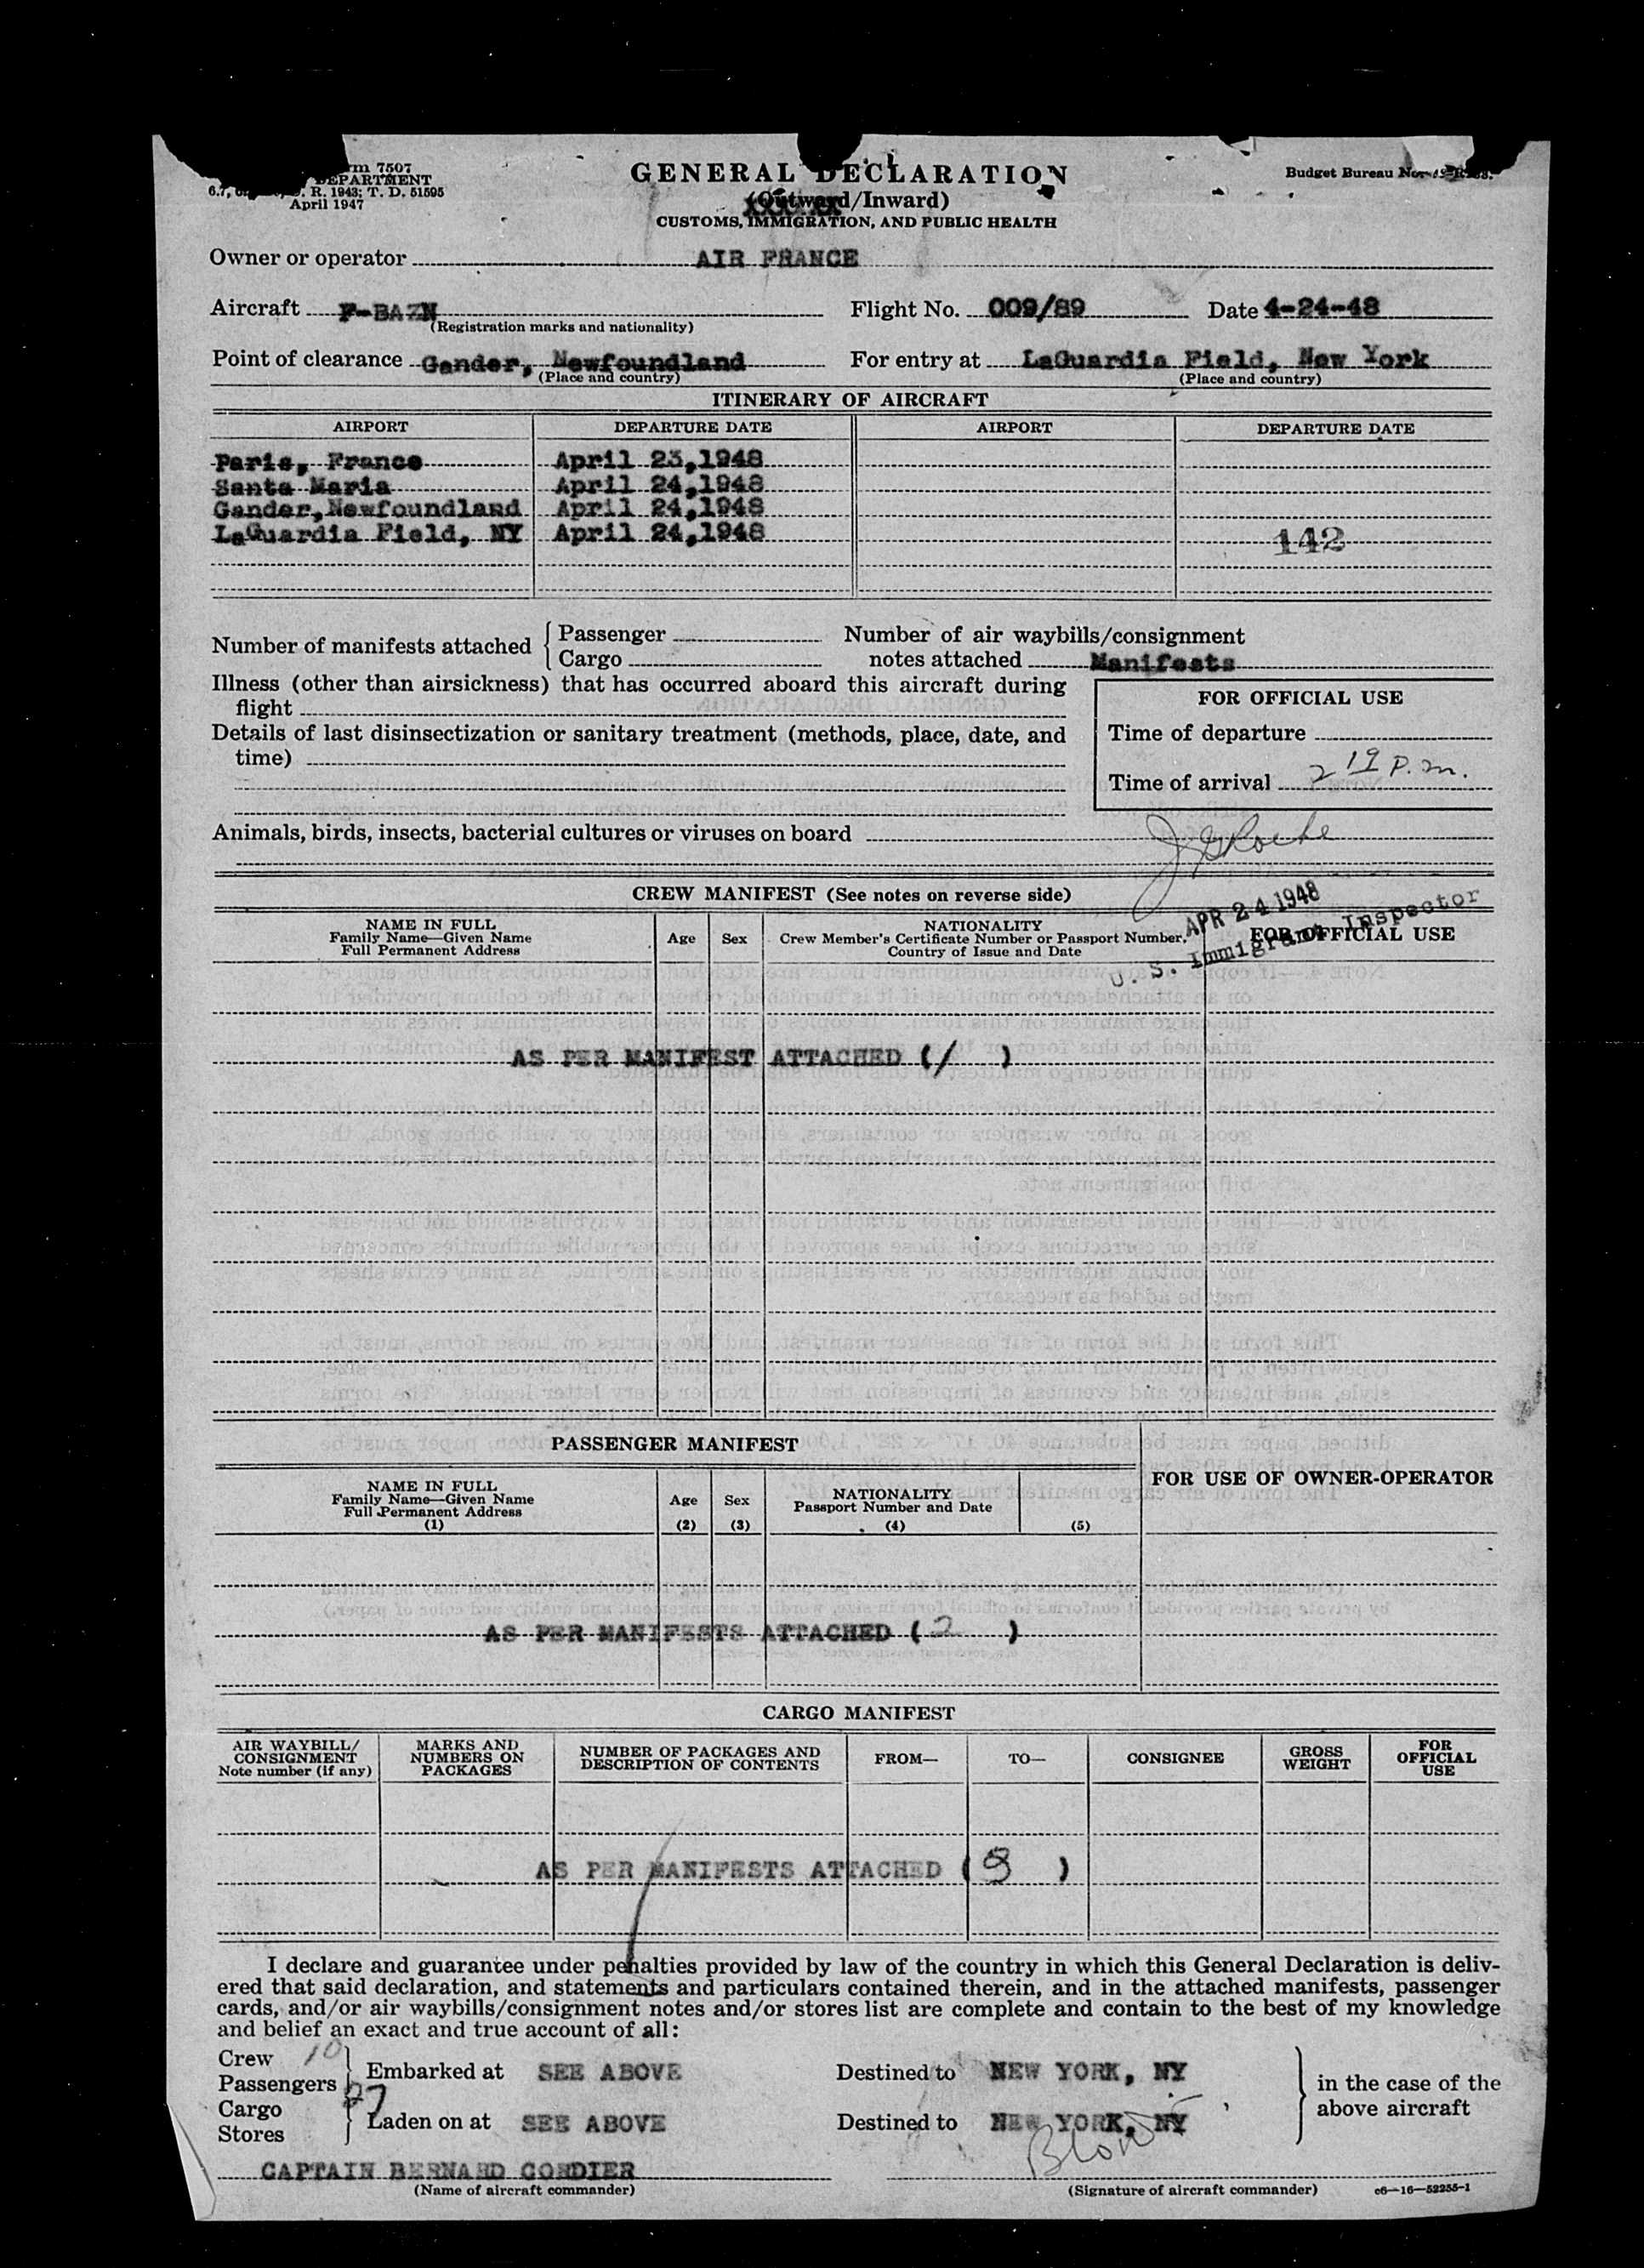 rm 7507
DEPARTMENT
R. 1943; T. D. 51595
April 1947
GENERAL DECLARATION
(Outward/Inward)
CUSTOMS, IMMIGRATION, AND PUBLIC HEALTH
Budget Bureau No.
Owner or operator AIR FRANCE
Aircraft F-BAZN Flight No. 009/89 Date 4-24-48
(Registration marks and nationality)
Point of clearance Gander, Newfoundland For entry at LaGuardia Field, New York
(Place and country) (Place and country)
ITINERARY OF AIRCRAFT
AIRPORT DEPARTURE DATE AIRPORT DEPARTURE DATE
Paris, France April 23,1948
Santa Maria April 24,1948
Gander,Newfoundland April 24,1948
LaGuardia Field, NY April 24,1948 142
Number of manifests attached { Passenger
Cargo
Number of air waybills/consignment
notes attached Manifests
Illness (other than airsickness) that has occurred aboard this aircraft during
flight
Details of last disinsectization or sanitary treatment (methods, place, date, and
time)
FOR OFFICIAL USE
Time of departure
Time of arrival 2 19 P.m.
Animals, birds, insects, bacterial cultures or viruses on board
J G Roche
APR 24 1948
U. S. Immigrant Inspector
CREW MANIFEST (See notes on reverse side)
NAME IN FULL
Family Name—Given Name
Full Permanent Address
Age Sex
NATIONALITY
Crew Member's Certificate Number or Passport Number,
Country of Issue and Date
FOR OFFICIAL USE
AS PER MANIFEST ATTACHED (/ )
PASSENGER MANIFEST
FOR USE OF OWNER-OPERATOR
NAME IN FULL
Family Name—Given Name
Full Permanent Address
(1)
Age
(2)
Sex
(3)
NATIONALITY
Passport Number and Date
(4) (5)
AS PER MANIFESTS ATTACHED ( 2 )
CARGO MANIFEST
AIR WAYBILL/
CONSIGNMENT
Note number (if any)
MARKS AND
NUMBERS ON
PACKAGES
NUMBER OF PACKAGES AND
DESCRIPTION OF CONTENTS
FROM—
TO—
CONSIGNEE
GROSS
WEIGHT
FOR
OFFICIAL
USE
AS PER MANIFESTS ATTACHED ( )
I declare and guarantee under penalties provided by law of the country in which this General Declaration is deliv-
ered that said declaration, and statements and particulars contained therein, and in the attached manifests, passenger
cards, and/or air waybills/consignment notes and/or stores list are complete and contain to the best of my knowledge
and belief an exact and true account of all:
Crew 10
Passengers
Embarked at SEE ABOVE Destined to NEW YORK, NY
Cargo
Stores
Laden on at SEE ABOVE Destined to NEW YORK, NY
in the case of the
above aircraft
CAPTAIN BERNARD CORDIER
(Name of aircraft commander) (Signature of aircraft commander) c6—16—52255-1